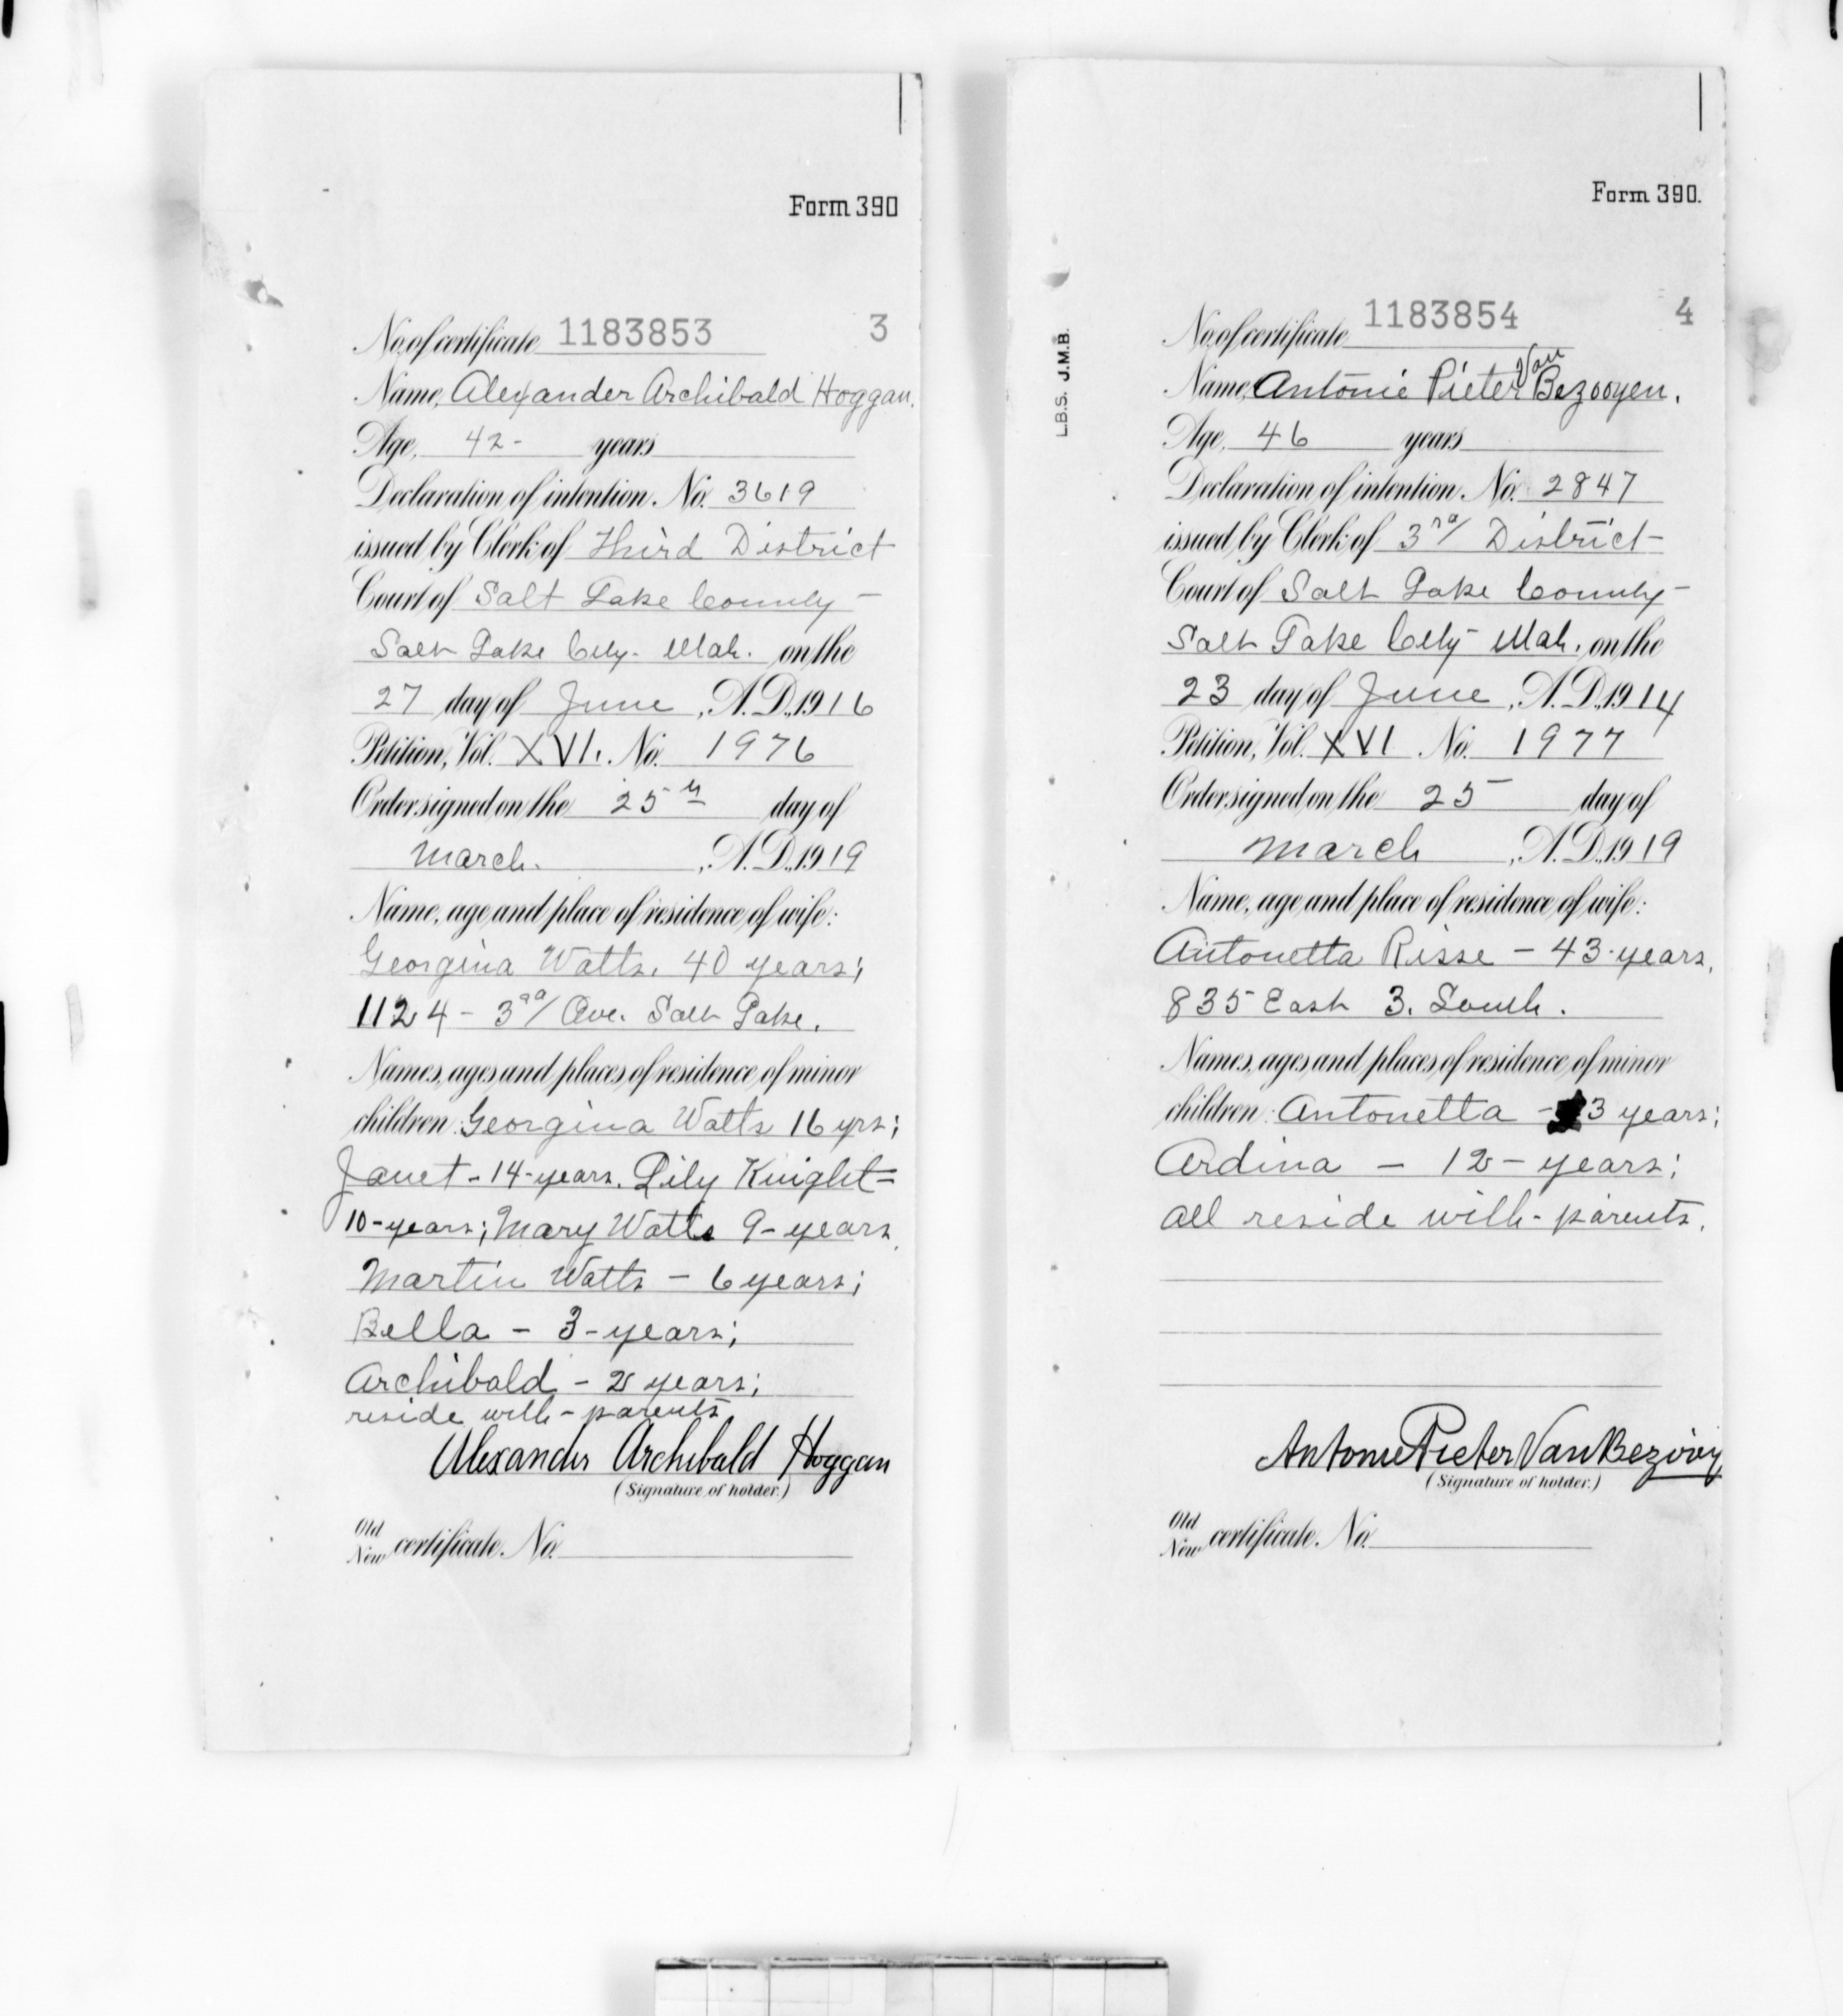 Form 390
No. of certificate 1183853 3
Name, Alexander Archibald Hoggan.
Age, 42 - years
Declaration of intention. No. 3619
issued by Clerk of Third District
Court of Salt Lake County -
Salt Lake City. Utah. on the
27 day of June, A.D. 1916
Petition, Vol. XVI. No. 1976
Order signed on the 25th day of
March. , A.D. 1919
Name, age and place of residence of wife:
Georgina Watts. 40 years;
1124 - 3rd Ave. Salt Lake.
Names, ages and places of residence of minor
children: Georgina Watts 16 yrs;
Janet - 14 - years. Lily Knight =
10 - years; Mary Watts 9 - years.
Martin Watts - 6 years;
Bella - 3 - years;
Archibald - 2 years;
reside with - parents
Alexander Archibald Hoggan
(Signature of holder.)
Old
New certificate. No.
Form 390.
L.B.S. J.M.B.
No. of certificate 1183854 4
Name, Antonie Pieter Van Bezooyen.
Age, 46 years
Declaration of intention. No. 2847
issued by Clerk of 3rd District -
Court of Salt Lake County -
Salt Lake City - Utah. on the
23 day of June, A.D. 1914
Petition, Vol. XVI No. 1977
Order signed on the 25 - day of
March , A.D. 1919
Name, age and place of residence of wife:
Antonetta Risse - 43 - years.
835 East 3. South.
Names, ages and places of residence of minor
children: Antonetta - 3 years;
Ardina - 12 - years;
all reside with - parents.
Antonie Pieter Van Bezooy
(Signature of holder.)
Old
New certificate. No.